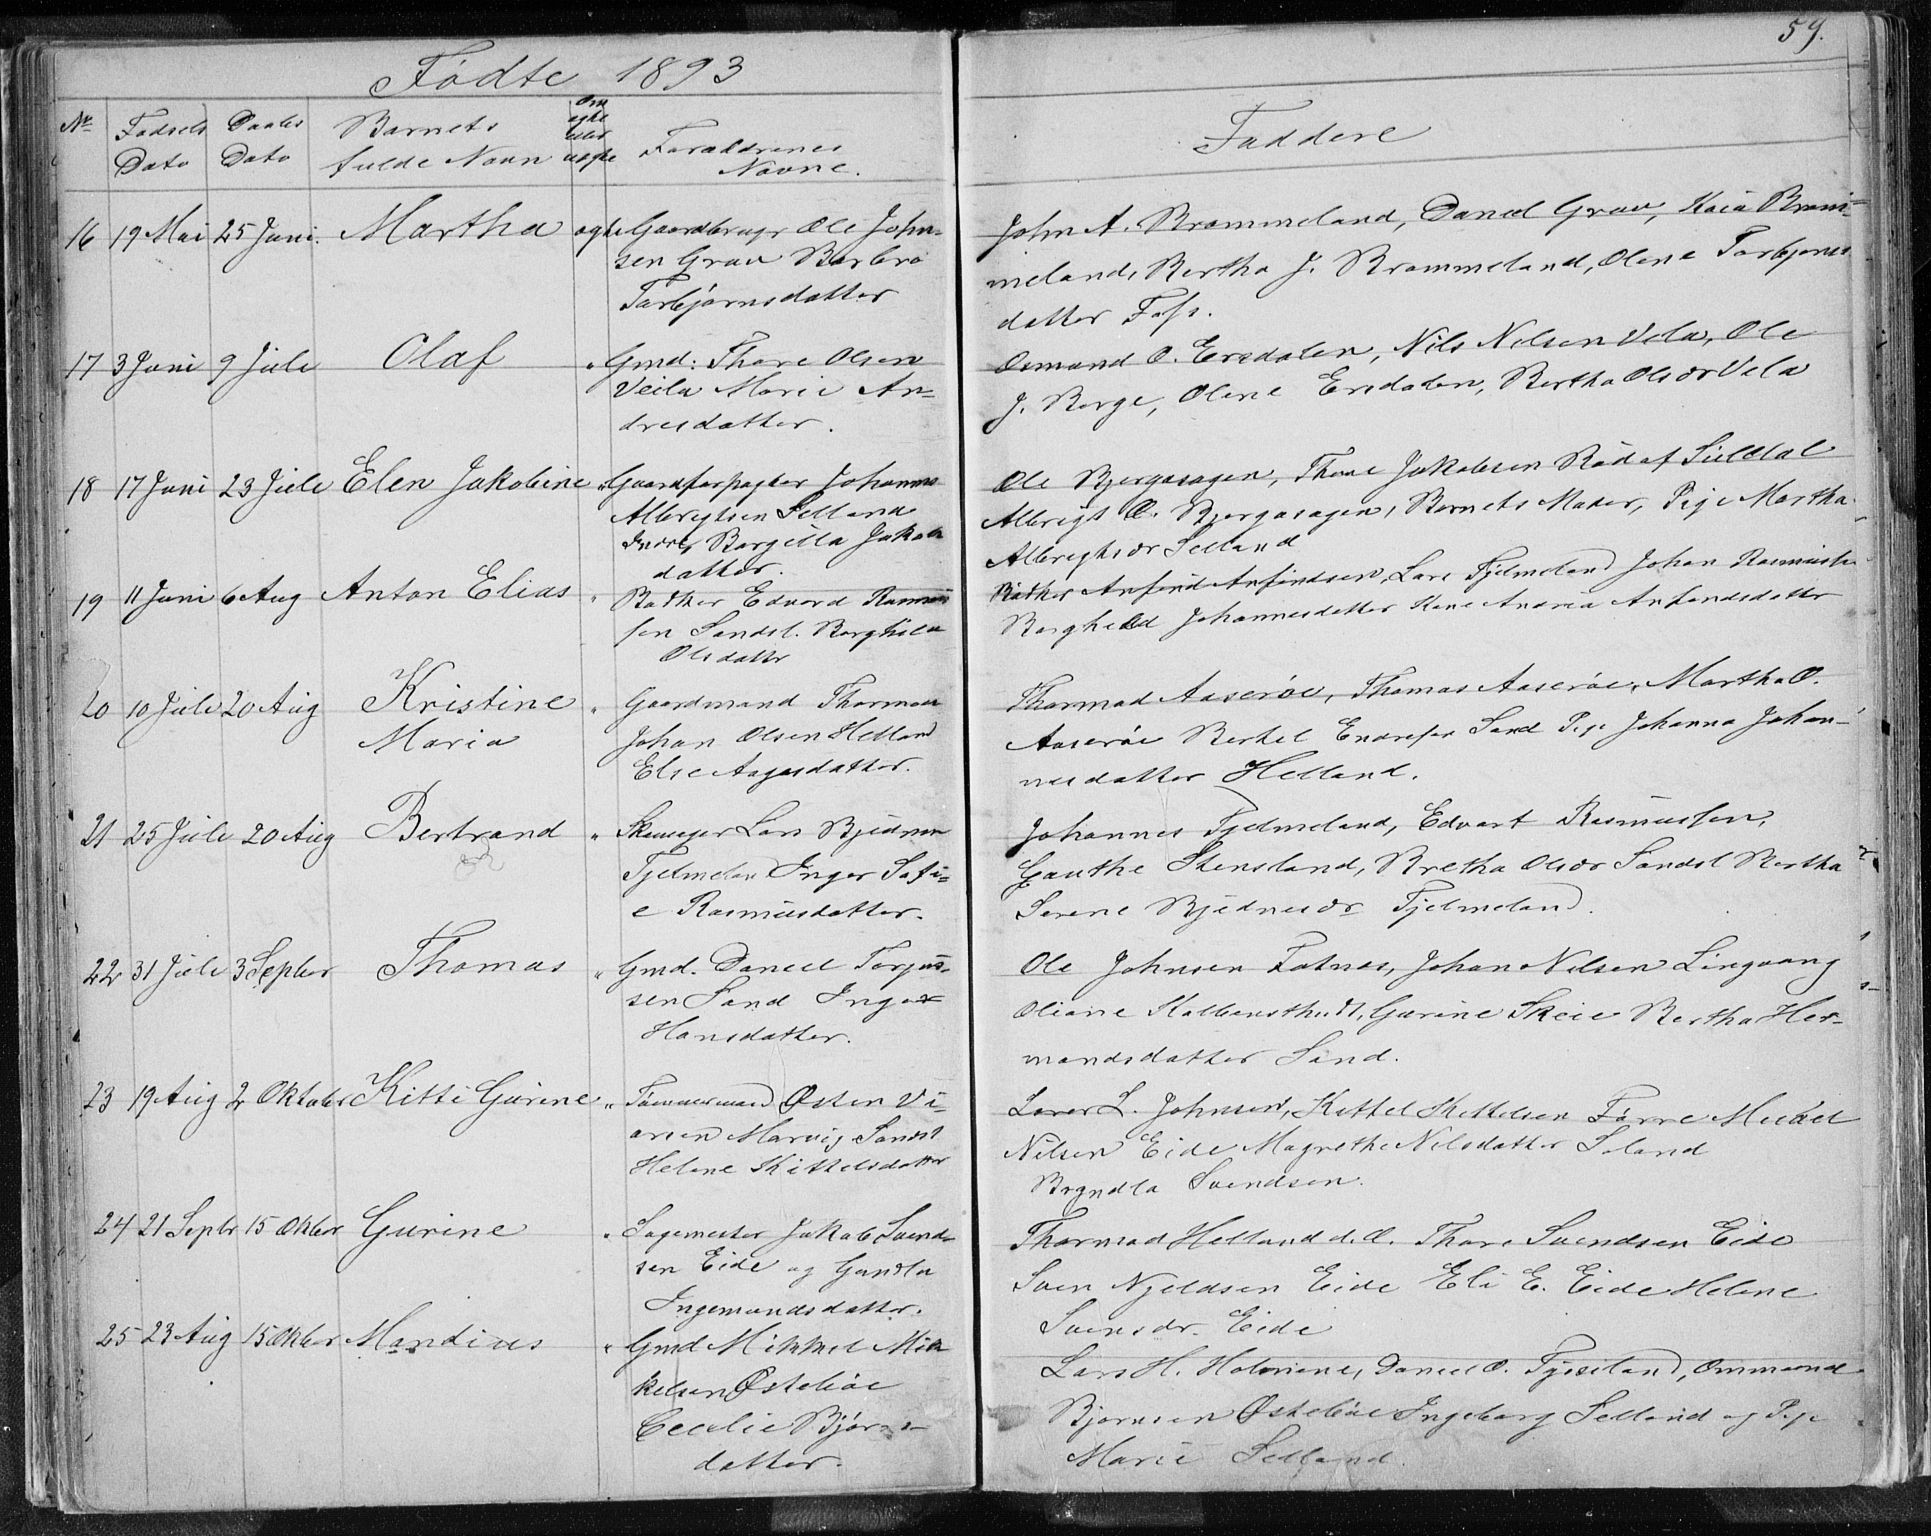 59.
Fødte 1893
No Fødsels Dato
Daabs Dato
Barnets fulde Navn
Om ægte eller uægte
Forældrenes Navne.
Faddere
16 19 Mai 25 Juni. Martha ægte Gaardbruger Ole John-
sen Grav Barbro
Torbjørnsdatter
John A. Brommeland, Daniel Grav, Kaia Brom-
meland, Bertha J. Brommeland, Olene Torbjørns
datter Foss.
17 3 Juni 9 Juli Olaf " Gmd. Thore Olsen
Veila Marie An-
dresdatter.
Osmund O. Ersdalen, Nils Nilsen Vela, Ole
J. Berge, Olene Ersdalen, Bertha Olsdr Vela
18 17 Juni 23 Juli Elen Jakobine " Gaardforpagter Johannes
Albregtsen Selland
Indre, Borgilla Jakobs
datter.
Ole Bjergasagen, Thore Jakobsen Rød af Suldal
Albregt O. Bjergasagen, Barnets Moder, Pige Martha
Albregtsdr Selland
19 11 Juni 6 Aug Anton Elias " Bødker Edvard Rasmus
sen Sandsl. Borghilda
Olsdatter
Bødker Anfind Anfindsen, Lars Tjelmeland Johan Rasmusen
Borghild Johannesdatter Kone Andrea Anfindsdatter
20 10 Juli 20 Aug Kristine
Maria
" Gaardmand Thormod
Johan Olsen Helland
Else Aagesdatter.
Thormod Aaserøe, Thomas Aaserøe, Martha O.
Aaserøe Bertel Endresen Sand Pige Johanna Johan-
nesdatter Helland.
21 25 Juli 20 Aug Bertrand " Skomager Lars Bjednesen
Tjelmeland Inger Sofi-
e Rasmusdatter.
Johannes Tjelmeland, Edvart Rasmussen,
Gauthe Stensland, Bretha Olsdr Sandsl Bertha
Serene Bjednesdr Tjelmeland.
22 31 Juli 3 Septbr Thomas " Gmd. Daniel Torjus-
sen Sand Inger
Hansdatter.
Ole Johnsen Fatnes, Johan Nilsen Lingvang
Oliane Kolbensthvedt, Gurine Skeie Bertha Her-
mandsdatter Sand.
23 19 Aug 2 Oktober Kitti Gurine " Tømmermand Østen Vi-
arsen Marvig Sandsl
Helene Kittelsdatter
Lorer L. Johnsen, Kittel Kittelsen Førre Mickel
Nilsen Eide Magrethe Nilsdatter Seland
Bryndla Svendsen.
24 21 Septbr 15 Oktbr Gurine " Sagmester Jakob Svend-
sen Eide og Gunla
Ingemundsdatter.
Thormod Helland d.O. Thore Svendsen Eide
Sven Njeldsen Eide Eli E. Eide Helene
Svensdr. Eide
25 23 Aug 15 Oktbr Mandius " Gmd Mikkel Mik
kelsen Østebøe
Cecelie Bjørns-
datter.
Lars H. Holmene, Daniel O. Tysseland, Ommund
Bjørnsen Østebøe Ingeborg Selland og Pige
Marie Selland.